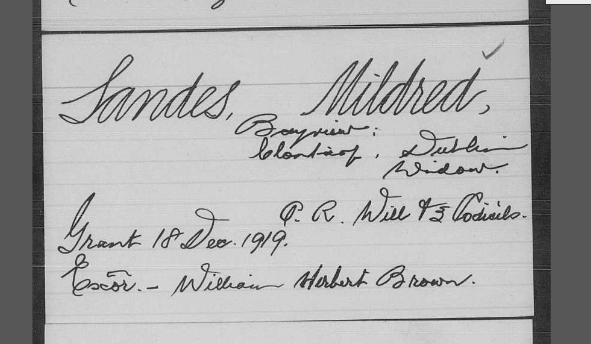 Sandes, Mildred,
Bayview;
Clontarf, Dublin
Widow.
P. R. Will & 3 Codicils.
Grant 18 Dec. 1919.
Excōr. – William Herbert Brown.